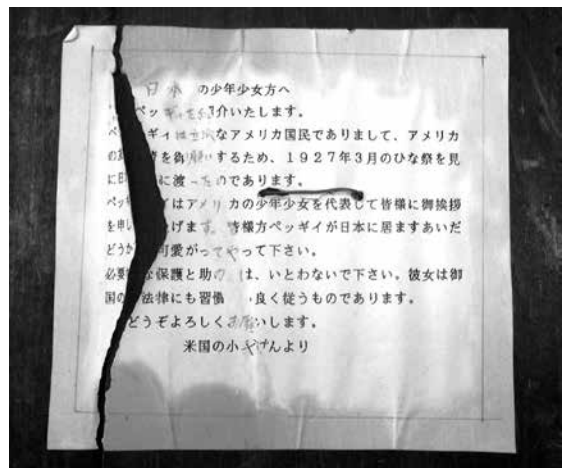 日本の少年少女方へ
ペッギイを紹介いたします。
ペッギイは立派なアメリカ国民でありまして、アメリカ
の を御願いするため、1927年3月のひな祭を見
に日 に渡ったのであります。
ペッギイはアメリカの少年少女を代表して皆様に御挨拶
を申し上げます。皆様方ペッギイが日本に居ますあいだ
どうか可愛がってやって下さい。
必要な保護と助 は、いとわないで下さい。彼女は御
国の法律にも習慣 良く従うものであります。
どうぞよろしくお願いします。
米国の小 げんより